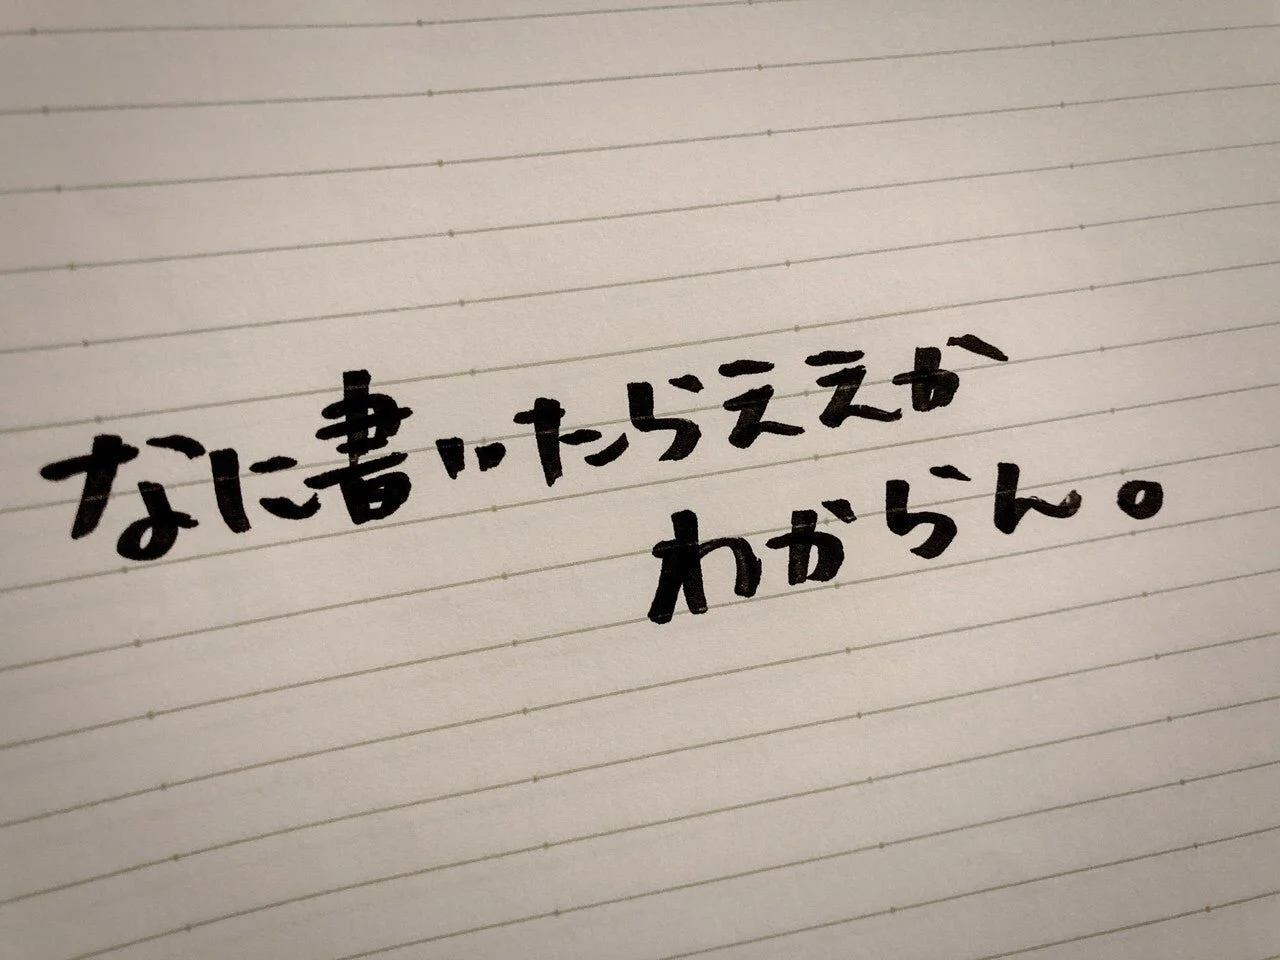 なに書いたらええか
わからん。